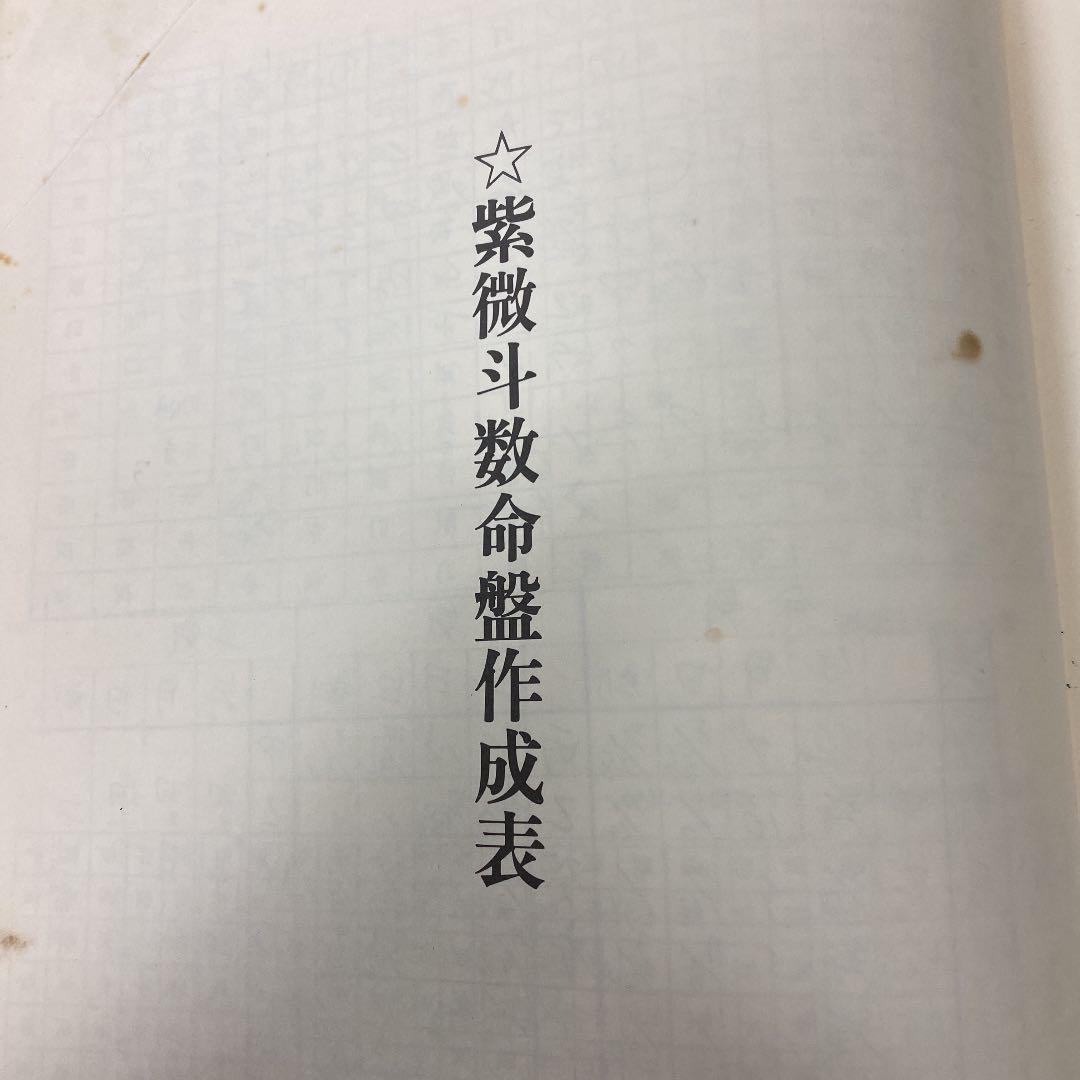 ☆紫微斗数命盤作成表